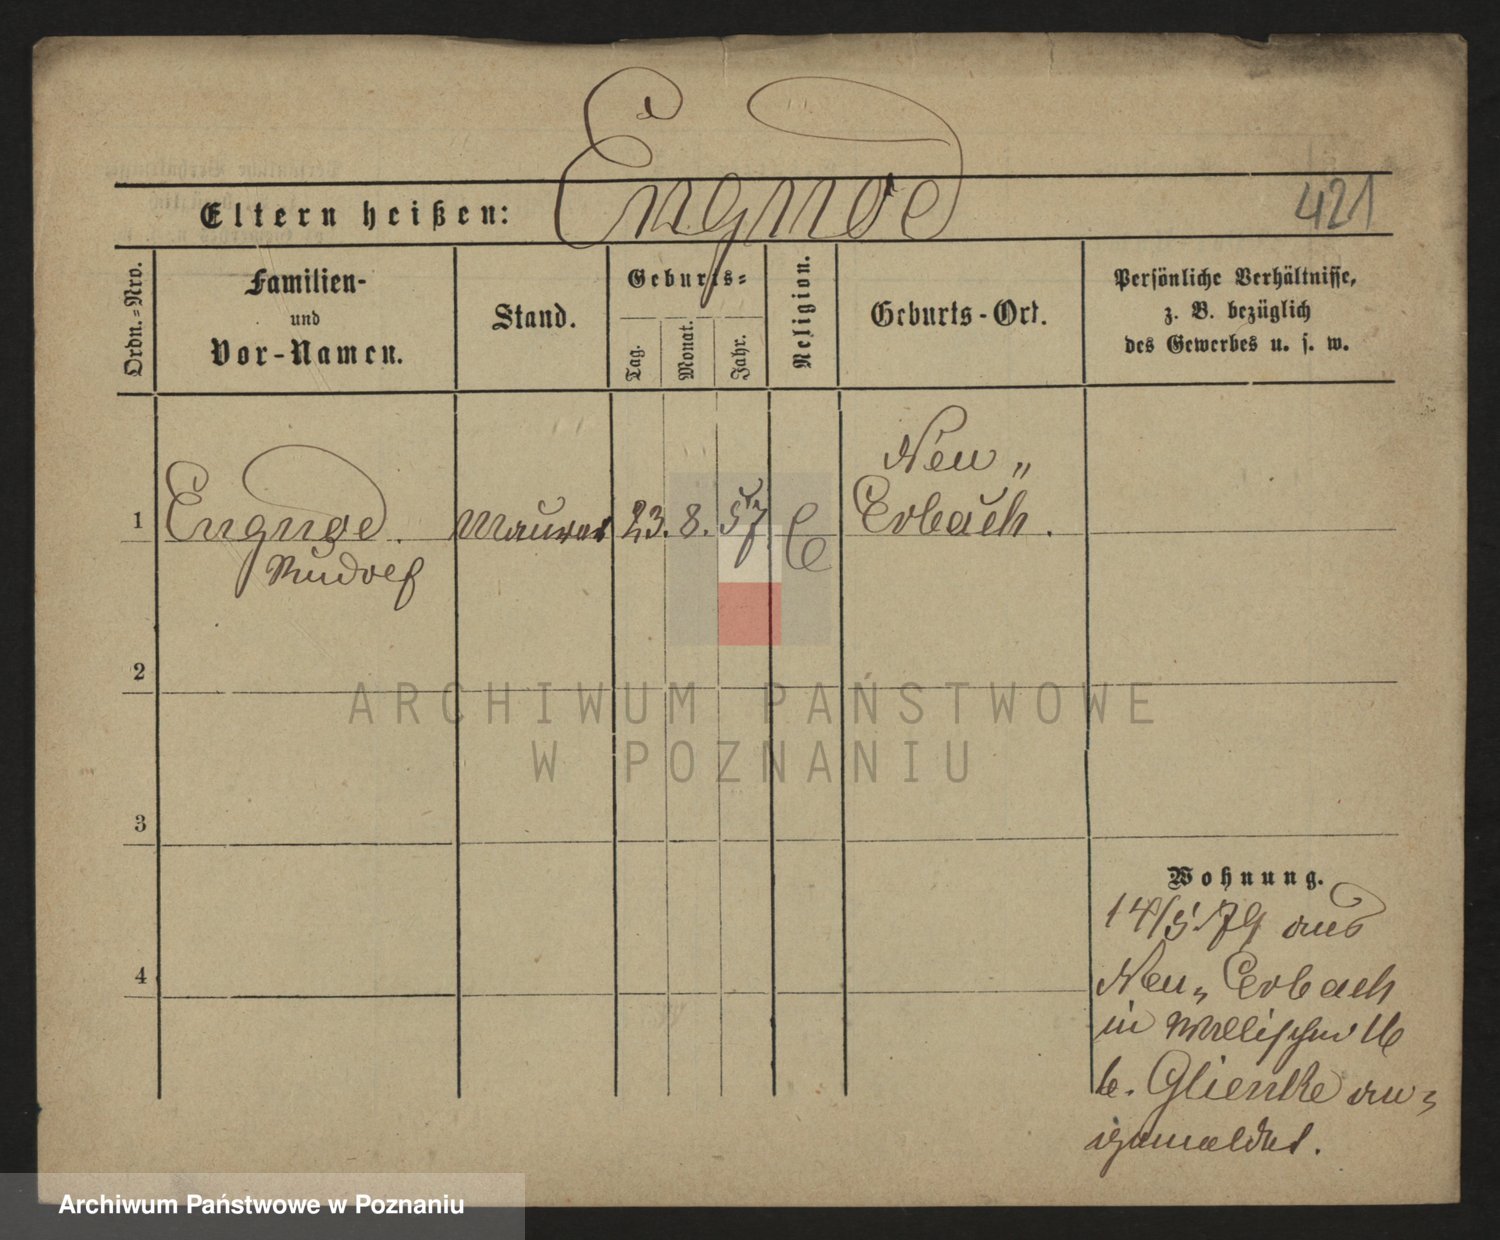 Engnoe
Eltern heißen:
421
Ordn.-Nro.
Familien-
und
Vor-Namen.
Stand.
Geburts-
Tag.
Monat.
Jahr.
Religion.
Geburts-Ort.
Persönliche Verhältnisse,
z. B. bezüglich
des Gewerbes u. s. w.
1
Engnoe.
Rudolf
Maurer
23.
8.
57
Neu-
Erbach.
2
3
4
Wohnung.
14/5.79 aus
Neu- Erbach
in Wallischei 16
b. Glienke an-
gemeldet.
ARCHIWUM PAŃSTWOWE
W POZNANIU
Archiwum Państwowe w Poznaniu